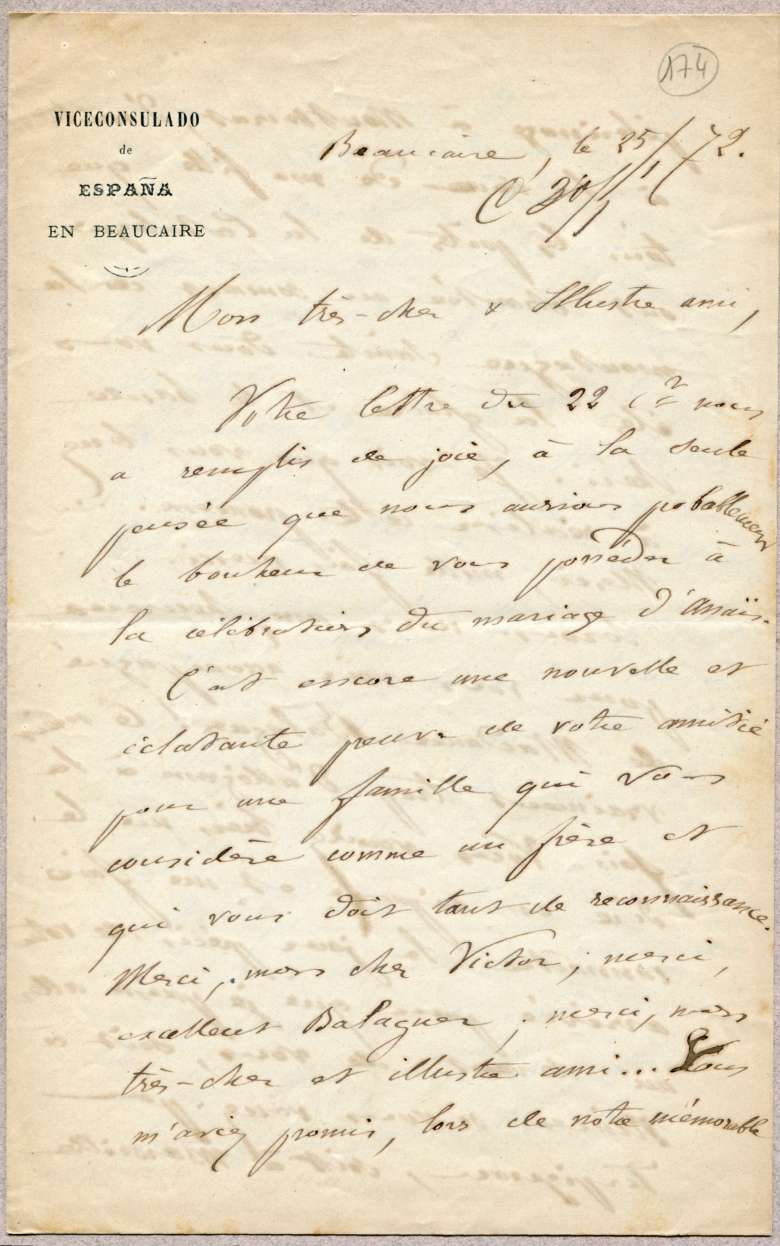 174
VICECONSULADO
de
ESPAÑA
EN BEAUCAIRE
Beaucaire, le 25/1/72.
Mon très-cher & Illustre ami,
Votre lettre du 22 Ct nous
a remplis de joie, à la seule
pensée que nous aurions pobablement
le bonheur de vous posséder à
la célébration du mariage d'Anaïs.
C'est encore une nouvelle et
éclatante peuve de votre amitié
pour une famille qui vous
considère comme un frère et
qui vous doit tant de reconnaissance.
Merci, mon cher Victor; merci,
excellent Balaguer; merci, mon
très-cher et illustre ami... Vous
m'aviez promis, lors de notre mémorable